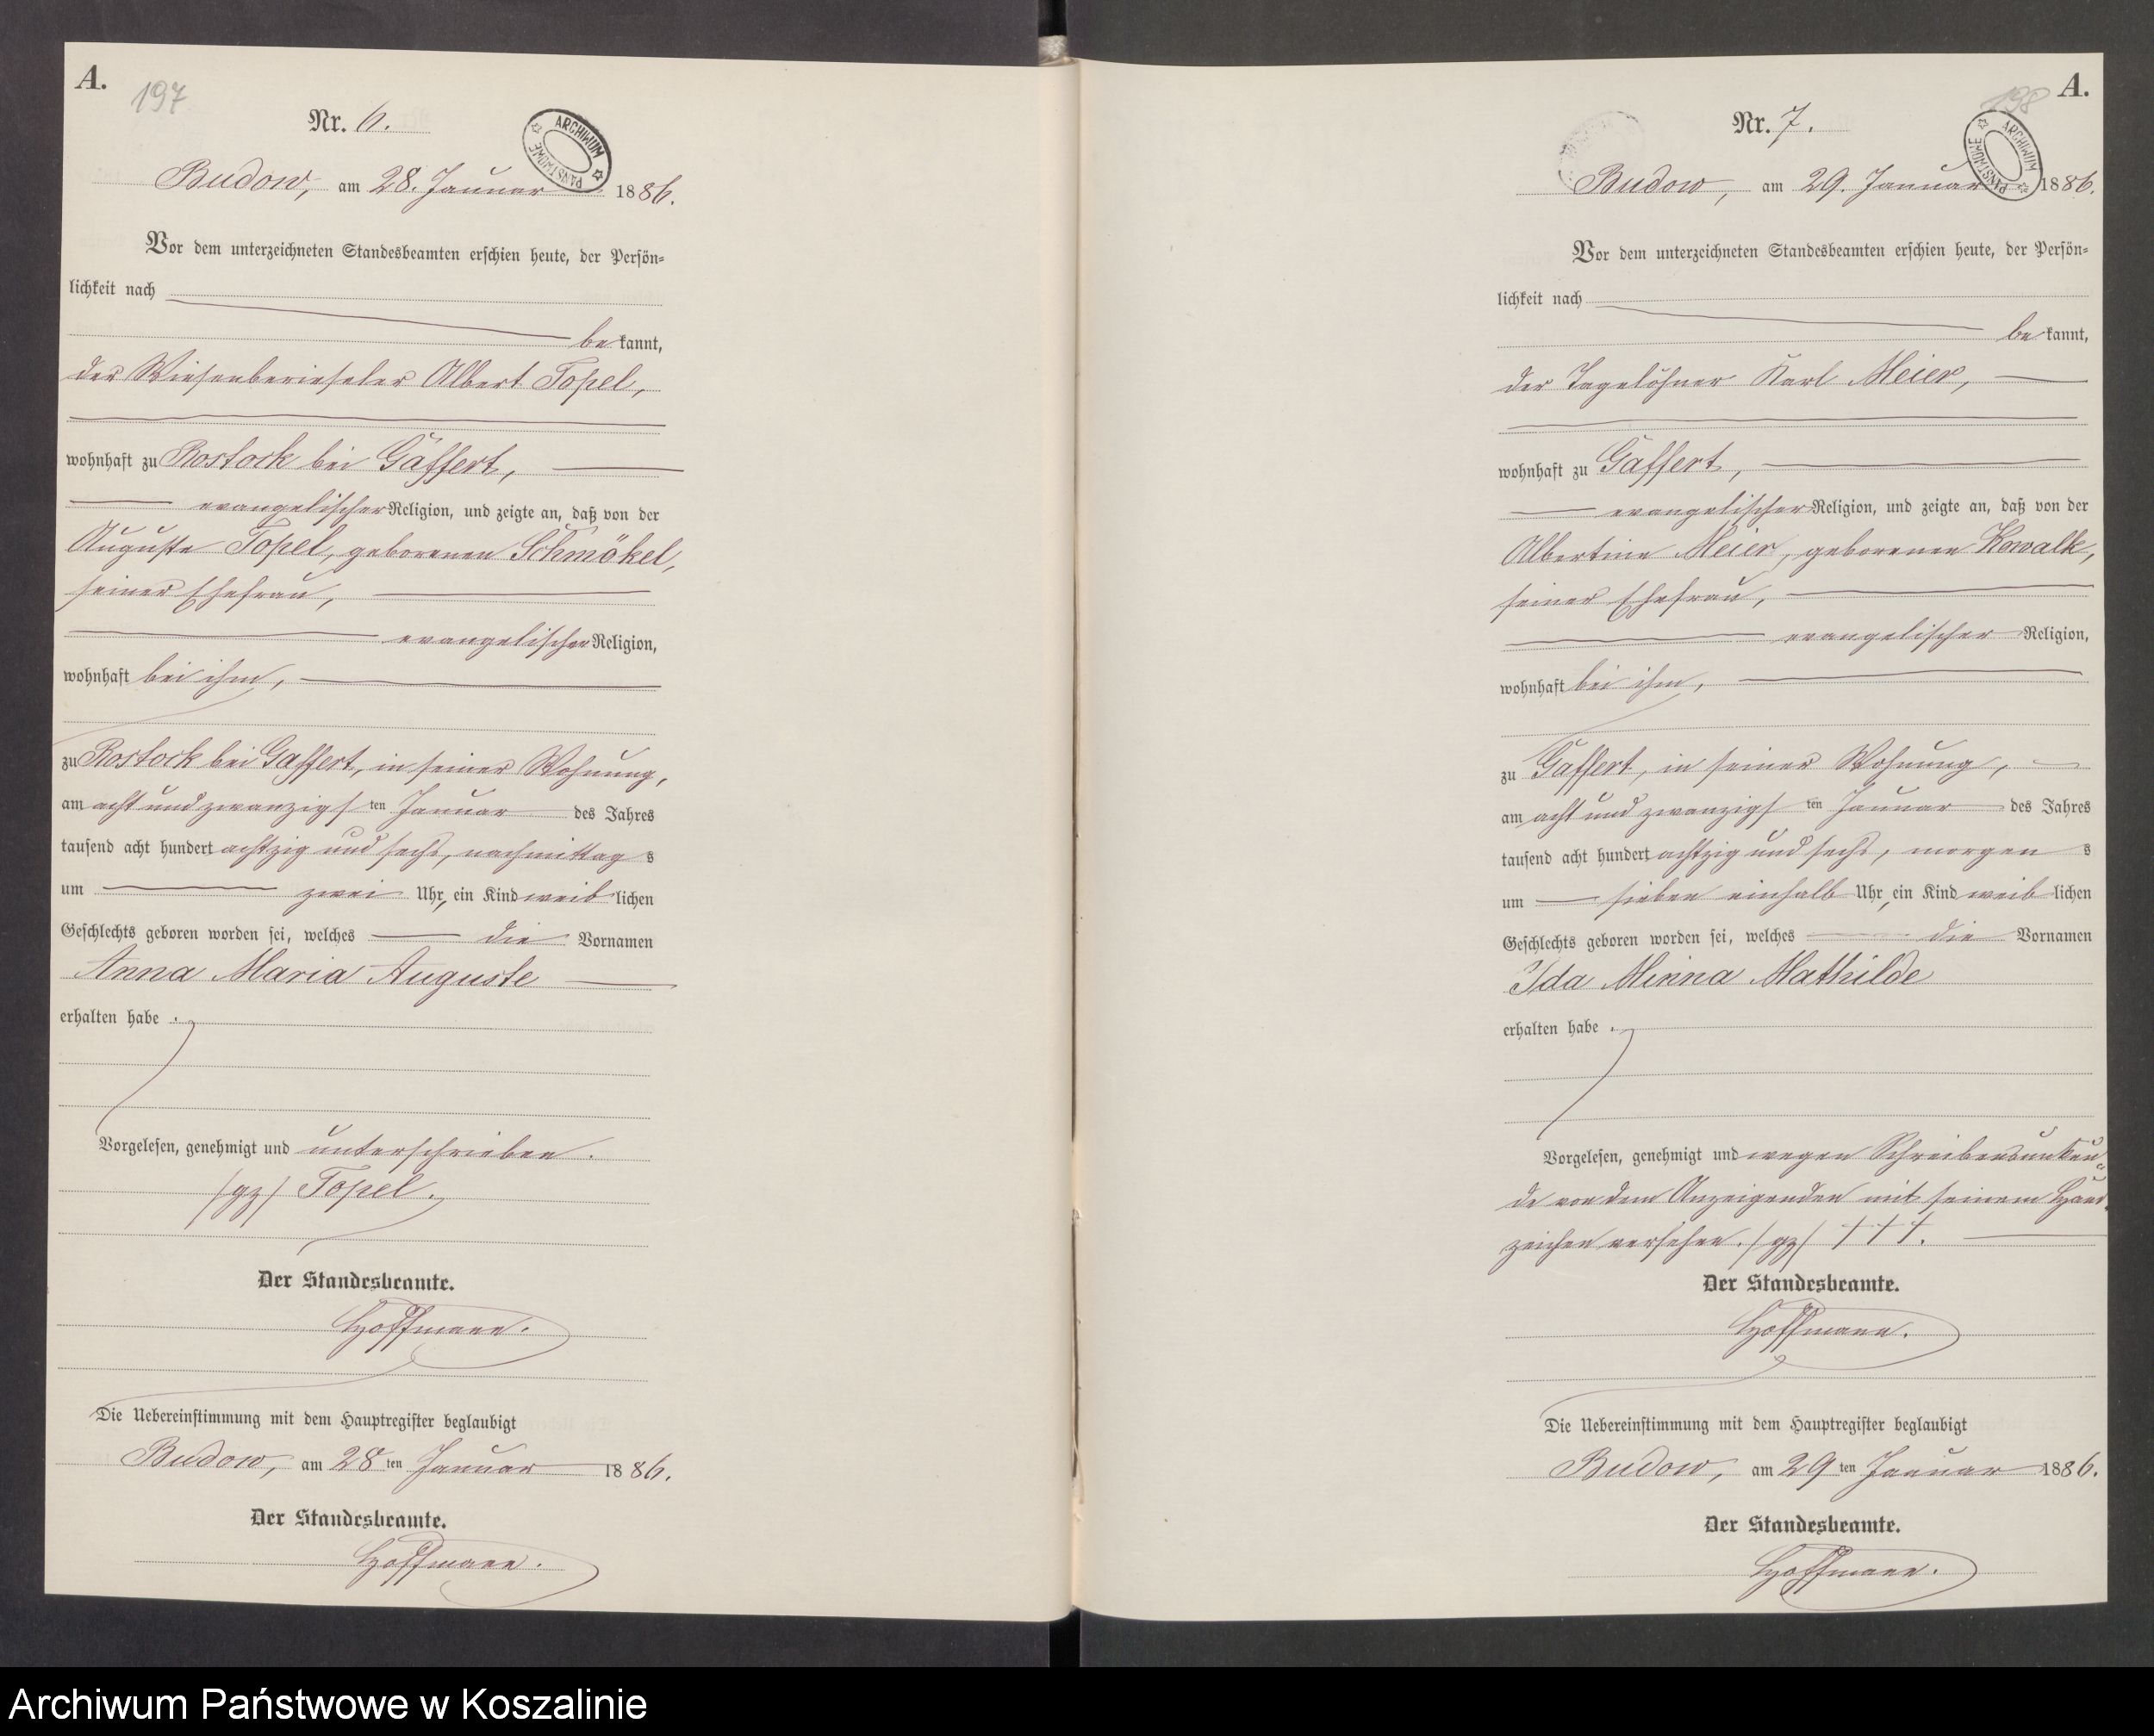 A.
197
Nr. 6.
ARCHIWUM PAŃSTWOWE
Budow, am 28. Januar 1886.
Vor dem unterzeichneten Standesbeamten erschien heute, der Persön-
lichkeit nach
be kannt,
der Wiesenberieseler Albert Topel,
wohnhaft zu Rostock bei Gaffert,
evangelischer Religion, und zeigte an, daß von der
Auguste Topel, geborenen Schmökel,
seiner Ehefrau,
evangelischer Religion,
wohnhaft bei ihm,
zu Rostock bei Gaffert, in seiner Wohnung,
am acht und zwanzigs ten Januar des Jahres
tausend acht hundert achtzig und sechs, nachmittag s
um zwei Uhr, ein Kind weib lichen
Geschlechts geboren worden sei, welches die Vornamen
Anna Maria Auguste
erhalten habe.
Vorgelesen, genehmigt und unterschrieben.
/gz/ Topel.
Der Standesbeamte.
Hoffmann.
Die Uebereinstimmung mit dem Hauptregister beglaubigt
Budow, am 28 ten Januar 1886.
Der Standesbeamte.
Hoffmann.
A.
198
Nr. 7.
ARCHIWUM PAŃSTWOWE
Budow, am 29. Januar 1886.
Vor dem unterzeichneten Standesbeamten erschien heute, der Persön-
lichkeit nach
be kannt,
der Tagelöhner Karl Meier,
wohnhaft zu Gaffert,
evangelischer Religion, und zeigte an, daß von der
Albertine Meier, geborenen Kowalk,
seiner Ehefrau,
evangelischer Religion,
wohnhaft bei ihm,
zu Gaffert, in seiner Wohnung,
am acht und zwanzigs ten Januar des Jahres
tausend acht hundert achtzig und sechs, morgen s
um sieben einhalb Uhr, ein Kind weib lichen
Geschlechts geboren worden sei, welches die Vornamen
Ida Minna Mathilde
erhalten habe.
Vorgelesen, genehmigt und wegen Schreibensunkun-
de von dem Anzeigenden mit seinem Hand-
zeichen versehen. /gz/ +++.
Der Standesbeamte.
Hoffmann.
Die Uebereinstimmung mit dem Hauptregister beglaubigt
Budow, am 29 ten Januar 1886.
Der Standesbeamte.
Hoffmann.
Archiwum Państwowe w Koszalinie